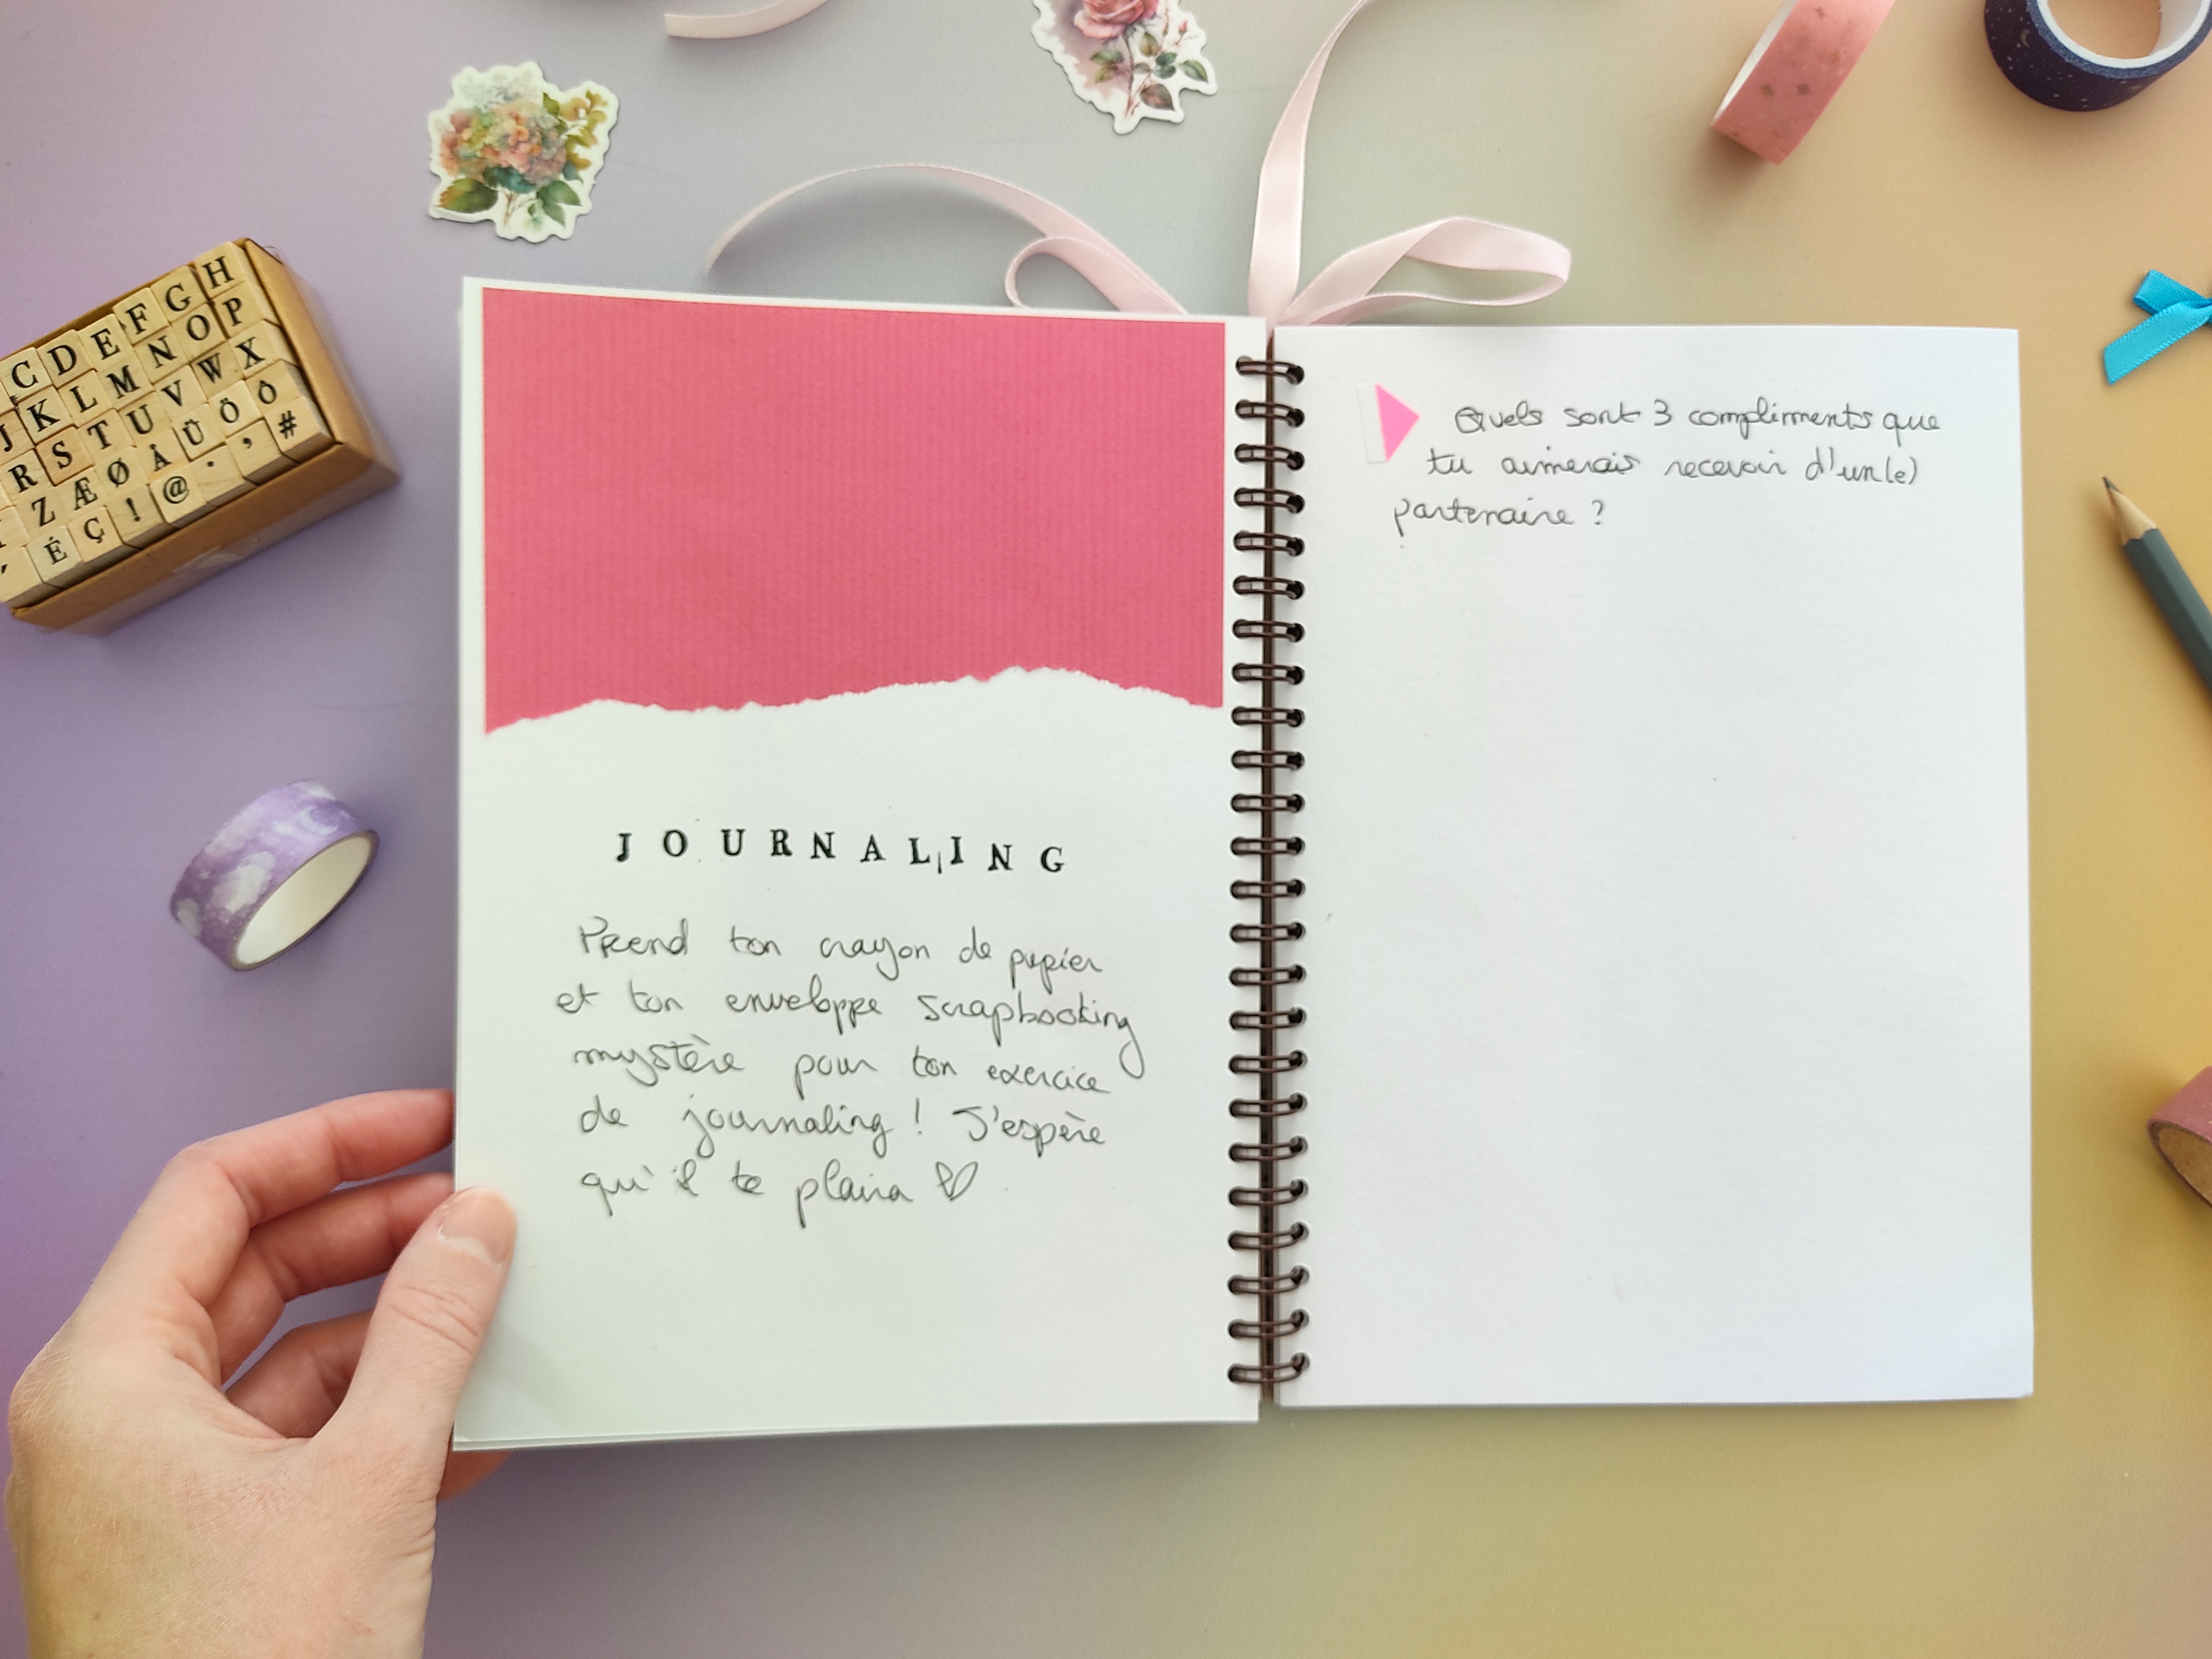 C D E F G H
J K L M N O P
R S T U V W X
Z Æ Ø Å Ü Ö Ô
É Ç ! @ . , #
JOURNALING
Prend ton crayon de papier
et ton enveloppe scrapbooking
mystère pour ton exercice
de journaling ! J'espère
qu'il te plaira ♡
Quels sont 3 compliments que
tu aimerais recevoir d'un(e)
partenaire ?